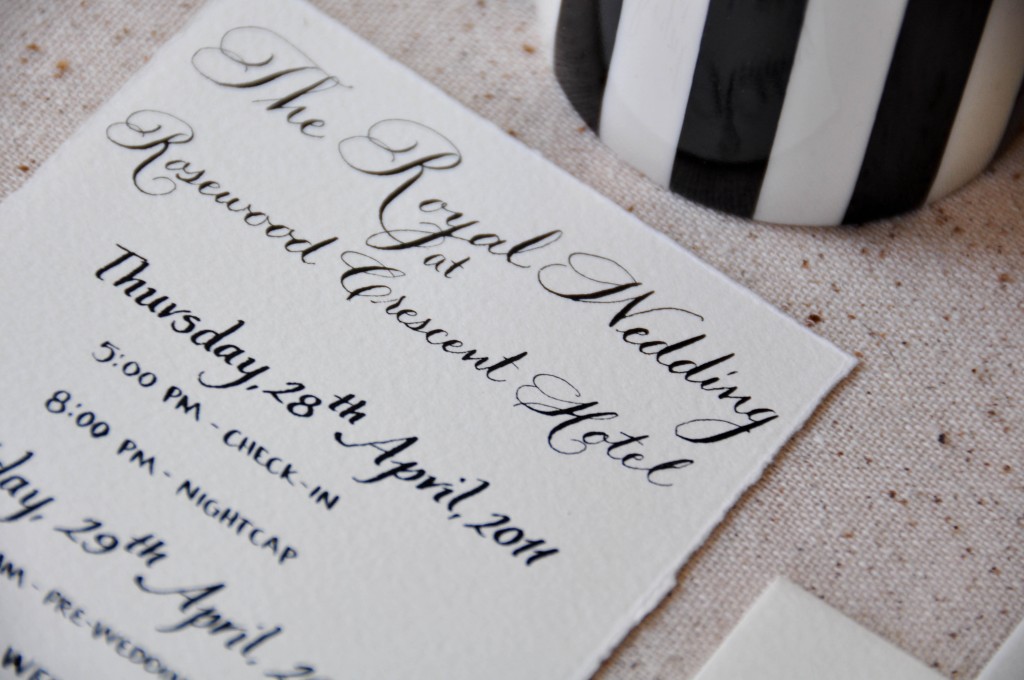 The Royal Wedding
at
Rosewood Crescent Hotel
Thursday, 28th April, 2011
5:00 PM - CHECK-IN
8:00 PM - NIGHTCAP
29th April,
PRE-WEDDING